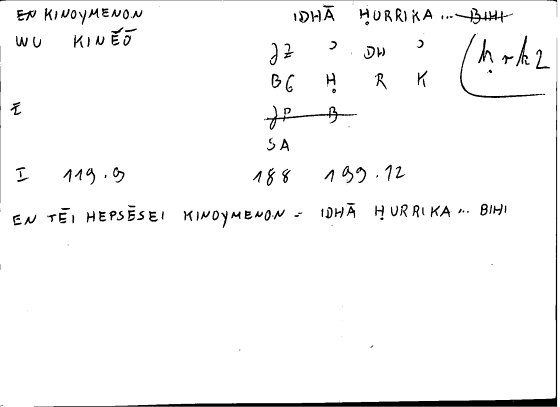 EN KINOYMENON IDHĀ ḤURRIKA ... BIHI
WU KINĒŌ JZ ɔ DH ɔ
BG Ḥ R K
ḥrk2
E JP B
SA
I 119.9 188 199.12
EN TĒI HEPSĒSEI KINOYMENON = IDHĀ ḤURRIKA ... BIHI